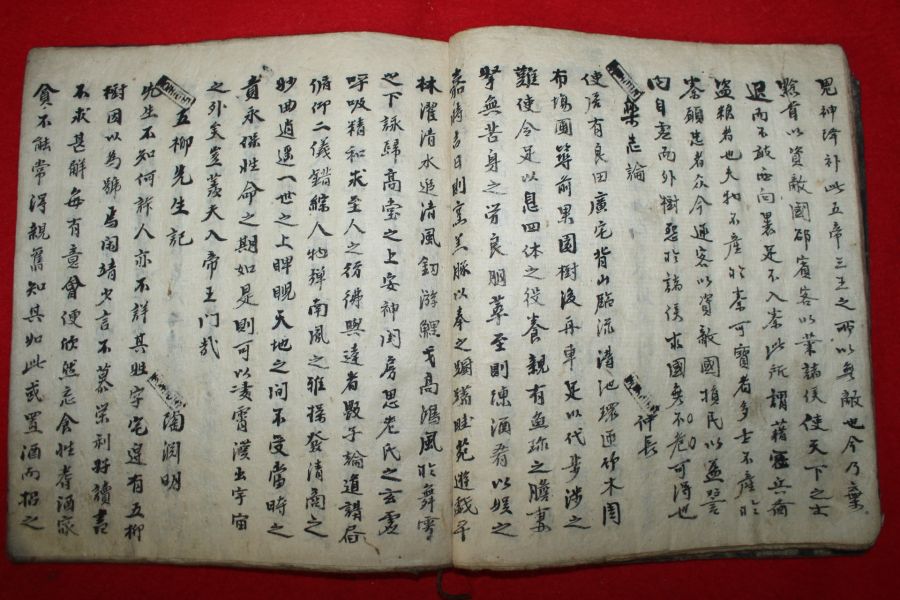 鬼神降补此五帝三王之所以無敵也今乃棄
黔首以資敵國却賓客以業諸侯使天下之士
退而不敢西向裹足不入秦此所謂藉寇兵而
盗粮者也夫物不産於秦可寶者多士不産於
秦願忠者众今逐客以資敵國損民以益讐
内自虚而外樹怨於諸侯求國無不危可得也
樂志論 仲長
使居有良田廣宅背山臨流溝池環匝竹木周
布塲圃築前果園樹後舟車足以代步涉之
難使令足以息四体之役養親有兼珍之膳妻
孥無苦身之勞良朋萃至則陳酒肴以娛之
嘉時吉日則烹羔豚以奉之躕躇畦苑遊戱平
林濯清水追清風釣游鯉弋高鴻風於舞雩
之下詠歸高堂之上安神閨房思老氏之玄虛
呼吸精和求至人之彷彿與達者数子論道講局
俯仰二儀錯綜人物彈南風之雅操發清商之
妙曲逍遥一世之上睥睨天地之間不受當時之
責永保性命之期如是則可以凌霄漢出宇宙
之外矣豈羡夫入帝王門哉
五柳先生記 陶渊明
先生不知何許人亦不詳其姓字宅邊有五柳
樹因以為號焉闲靖少言不慕榮利好讀書
不求甚解每有意會便欣然忘食性嗜酒家
貧不能常得親舊知其如此或置酒而招之